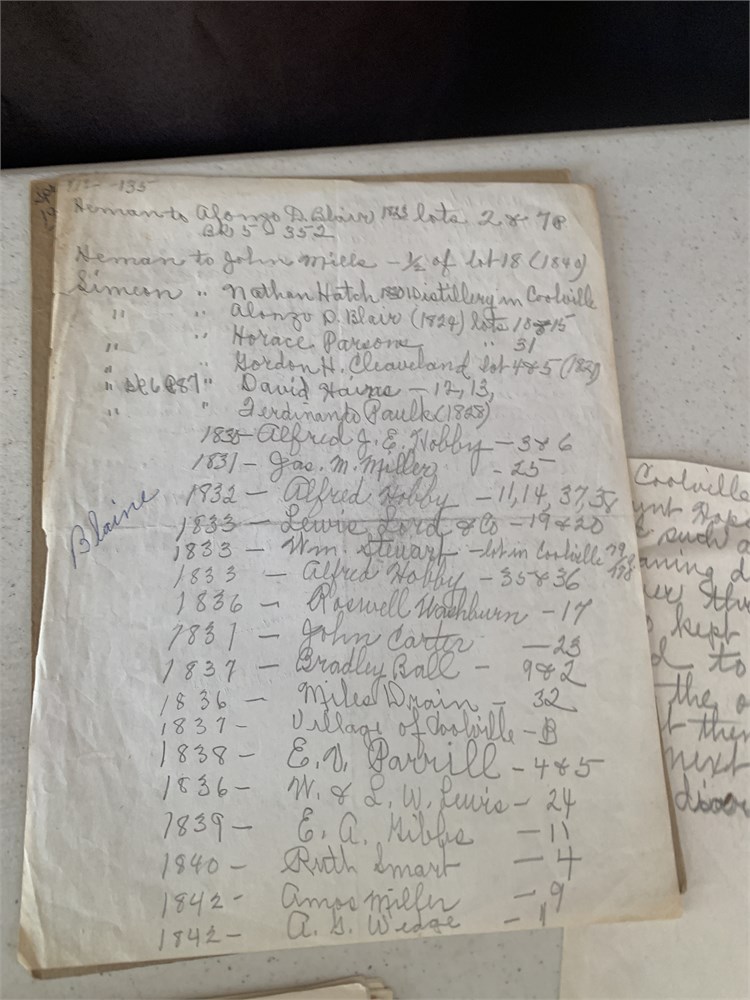 -135
Heman to Alonzo D. Blair 1833 lots 2 & 78
BK 5 - 352
Heman to John Mills - ½ of lot 18 (1840)
Simeon " Nathan Hatch Distillery in Coolville
" " Alonzo D. Blair (1824) lots 18 & 15
" " Horace Parsons " 31
" " Gordon H. Cleaveland lot 4 & 5
" " David Hains - 12, 13,
" " Ferdinand Paulk (1828)
1830 - Alfred J. E. Hobby - 3 & 6
1831 - Jas. M. Miller - 25
1832 - Alfred Hobby - 11, 14, 37, 38
Blaine
1833 - Lewis, Lord & Co - 19 & 20
1833 - Wm. Steuart - lot in Coolville
1833 - Alfred Hobby - 35 & 36
1836 - Roswell Washburn - 17
1831 - John Carter - 23
1837 - Bradley Ball - 9 & 2
1836 - Miles Drain - 32
1837 - Village of Coolville - B
1838 - E. V. Parrill - 4 & 5
1836 - W. & L. W. Lewis - 24
1839 - E. A. Gibbs - 11
1840 - Ruth Smart - 4
1842 - Amos Miller - 9
1842 - A. G. Wedge - 1
Coolville
such a
kept
to
the
next